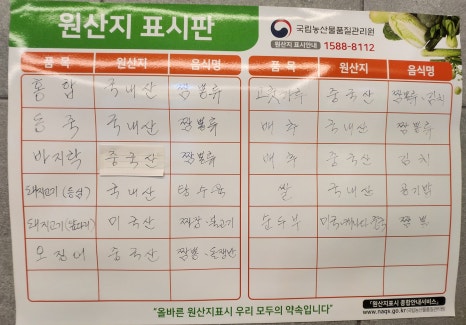 원산지 표시판
국립농산물품질관리원
원산지 표시안내 1588-8112
품 목 원산지 음식명
홍 합 국내산 짬뽕류
동 죽 국내산 짬뽕류
바지락 중국산 짬뽕류
돼지고기(등심) 국내산 탕수육
돼지고기 미국산 짜장·불고기
오징어 중국산 짬뽕·
품 목 원산지 음식명
고춧가루 중국산 짬뽕류·김치
배 추 국내산 짬뽕류
배 추 중국산 김 치
쌀 국내산 공기밥
순두부 미국· 짬 뽕
"올바른 원산지표시 우리 모두의 약속입니다"
「원산지표시 종합안내서비스」
www.naqs.go.kr 국립농산물품질관리원